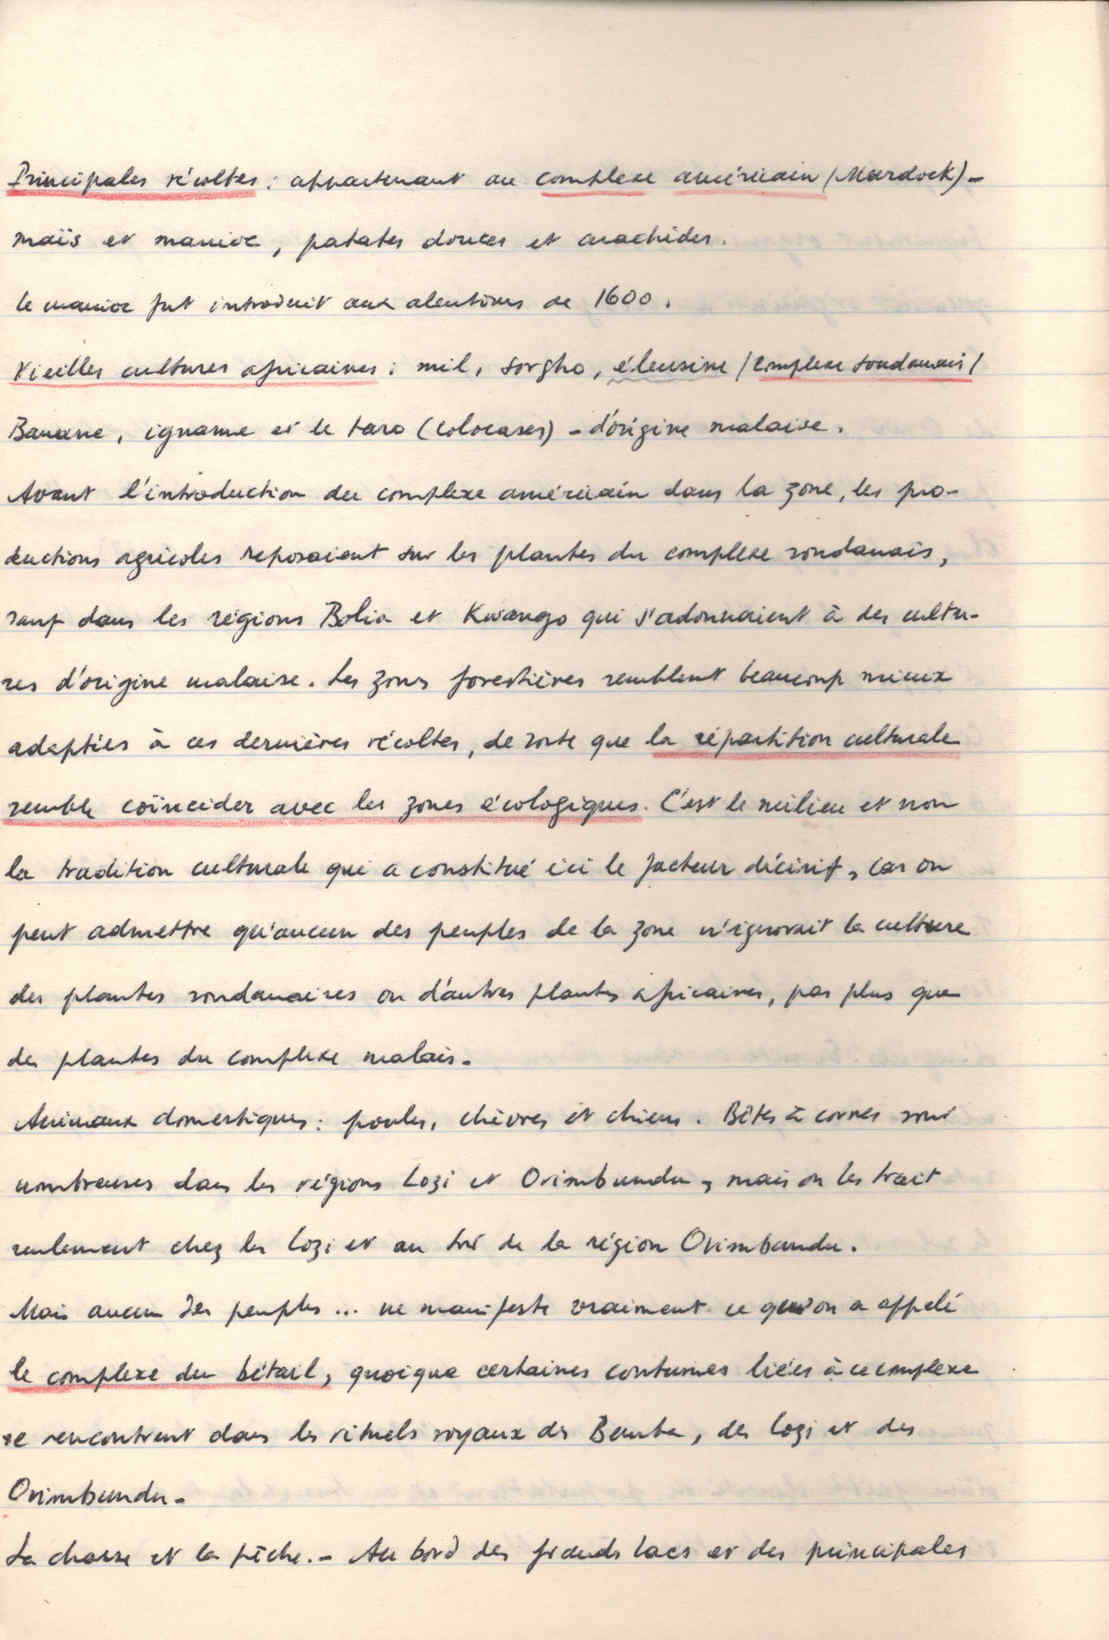 Principales récoltes : appartenant au complexe américain (Murdock) -
maïs et manioc, patates douces et arachides.
Le manioc fut introduit aux alentours de 1600.
Vieilles cultures africaines : mil, sorgho, éleusine /complexe soudanais/
Banane, igname et le taro (colocases) - d'origine malaise.
Avant l'introduction du complexe américain dans la zone, les pro-
ductions agricoles reposaient sur les plantes du complexe soudanais,
sauf dans les régions Bolia et Kwango qui s'adonnaient à des cultu-
res d'origine malaise. Les zones forestières semblent beaucoup mieux
adaptées à ces dernières récoltes, de sorte que la répartition culturale
semble coïncider avec les zones écologiques. C'est le milieu et non
la tradition culturale qui a constitué ici le facteur décisif, car on
peut admettre qu'aucun des peuples de la zone n'ignorait la culture
des plantes soudanaises ou d'autres plantes africaines, pas plus que
des plantes du complexe malais.
Animaux domestiques : poules, chèvres et chiens. Bêtes à cornes sont
nombreuses dans les régions Lozi et Ovimbundu, mais on les trait
seulement chez les Lozi et au sud de la région Ovimbundu.
Mais aucun des peuples ... ne manifeste vraiment ce qu'on a appelé
le complexe du bétail, quoique certaines coutumes liées à ce complexe
se rencontrent dans les rituels royaux des Bemba, des Lozi et des
Ovimbundu.
La chasse et la pêche. - Au bord des grands lacs et des principales